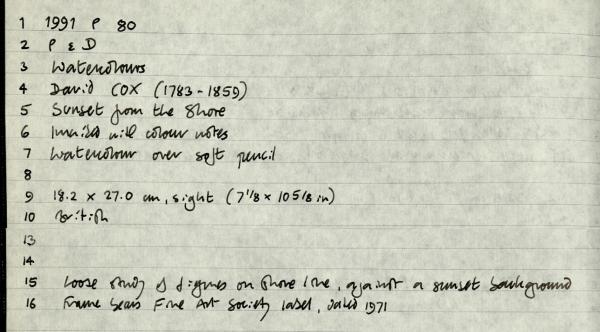 1 1991 P 80
2 P & D
3 Watercolours
4 David COX (1783-1859)
5 Sunset from the Shore
6 Inscribed with colour notes
7 Watercolour over soft pencil
8
9 18.2 x 27.0 cm, sight (7 1/8 x 10 5/8 in)
10 British
13
14
15 Loose study of figures on shore line, against a sunset background
16 Frame bears Fine Art Society label, dated 1971